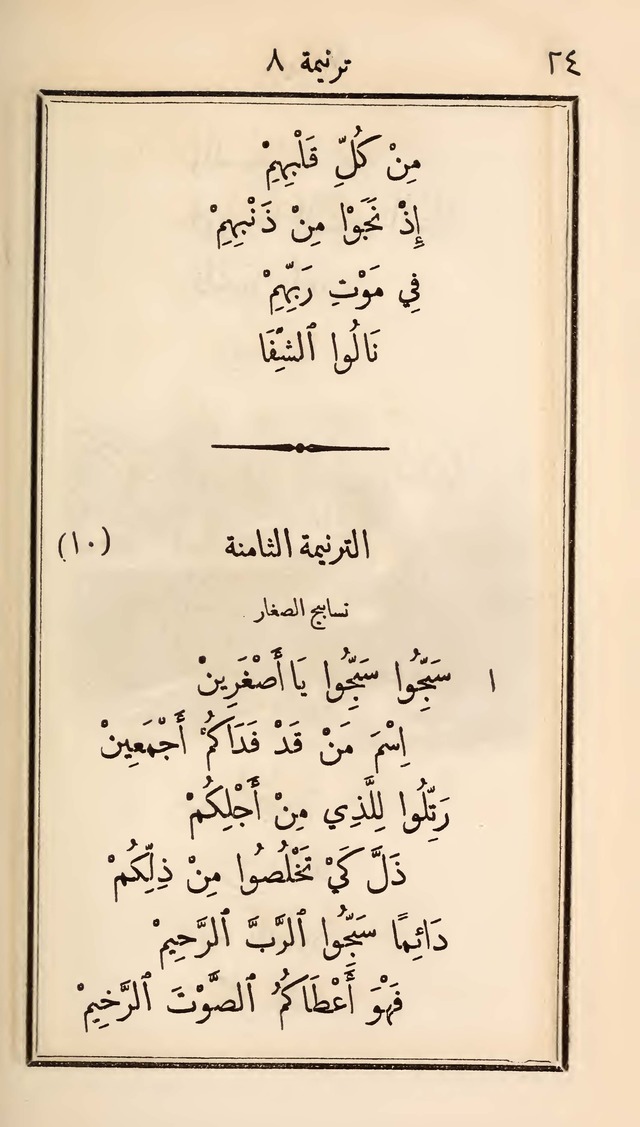 ٢٤ ترنيمة ٨
مِنْ كُلِّ قَلْبِهِمْ
إِذْ نَجَوْا مِنْ ذَنْبِهِمْ
فِي مَوْتِ رَبِّهِمْ
نَالُوا ٱلشِّفَا
الترنيمة الثامنة (١٠)
تسابيح الصغار
١ سَبِّحُوا سَبِّحُوا يَا أَصْغَرِينْ
اِسْمَ مَنْ قَدْ فَدَاكُمْ أَجْمَعِينْ
رَتِّلُوا لِلَّذِي مِنْ أَجْلِكُمْ
ذَلَّ كَيْ تَخْلُصُوا مِنْ ذِلِّكُمْ
دَائِمًا سَبِّحُوا ٱلرَّبَّ ٱلرَّحِيمْ
فَهْوَ أَعْطَاكُمُ ٱلصَّوْتَ ٱلرَّخِيمْ